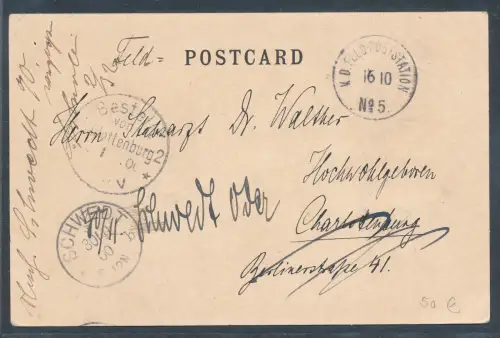 Feld= POSTCARD
K.D. FELD-POSTSTATION
16 10
No 5.
Bestellt
vom
Charlottenburg 2
Herrn Stabsarzt Dr. Walther
Hochwohlgeboren
Schwedt Oder
Charlottenburg
Berlinerstraße 41.
SCHWEDT
Nach Schwedt
50 €